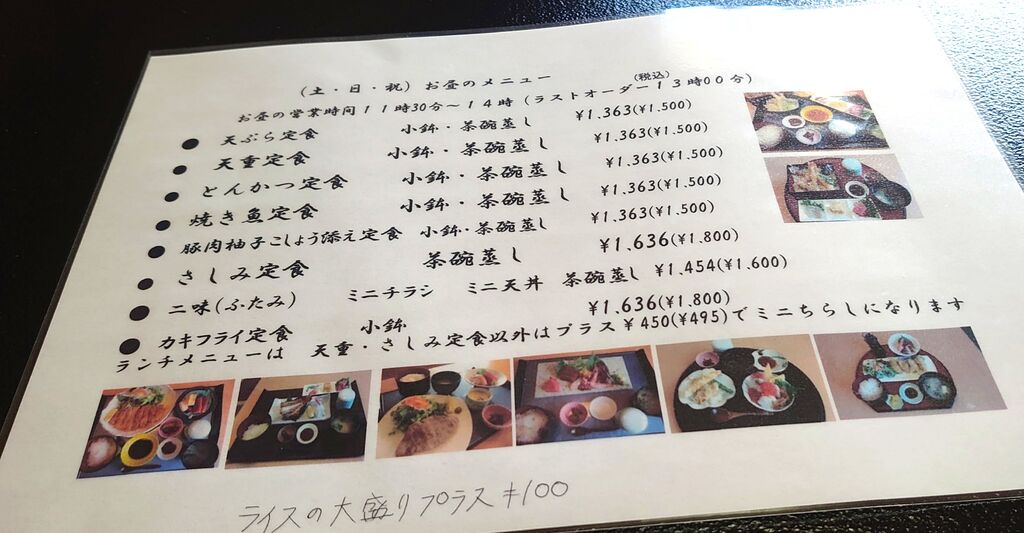 (土・日・祝) お昼のメニュー (税込)
お昼の営業時間11時30分~14時 (ラストオーダー13時00分)
● 天ぷら定食 小鉢・茶碗蒸し ¥1.363(¥1.500)
● 天重定食 小鉢・茶碗蒸し ¥1.363(¥1.500)
● とんかつ定食 小鉢・茶碗蒸し ¥1.363(¥1.500)
● 焼き魚定食 小鉢・茶碗蒸し ¥1.363(¥1.500)
● 豚肉柚子こしょう添え定食 小鉢・茶碗蒸し ¥1.363(¥1.500)
● さしみ定食 茶碗蒸し ¥1.636(¥1.800)
● 二味(ふたみ) ミニチラシ ミニ天丼 茶碗蒸し ¥1.454(¥1.600)
● カキフライ定食 小鉢 ¥1.636(¥1.800)
ランチメニューは 天重・さしみ定食以外はプラス¥450(¥495)でミニちらしになります
ライスの大盛りプラス¥100